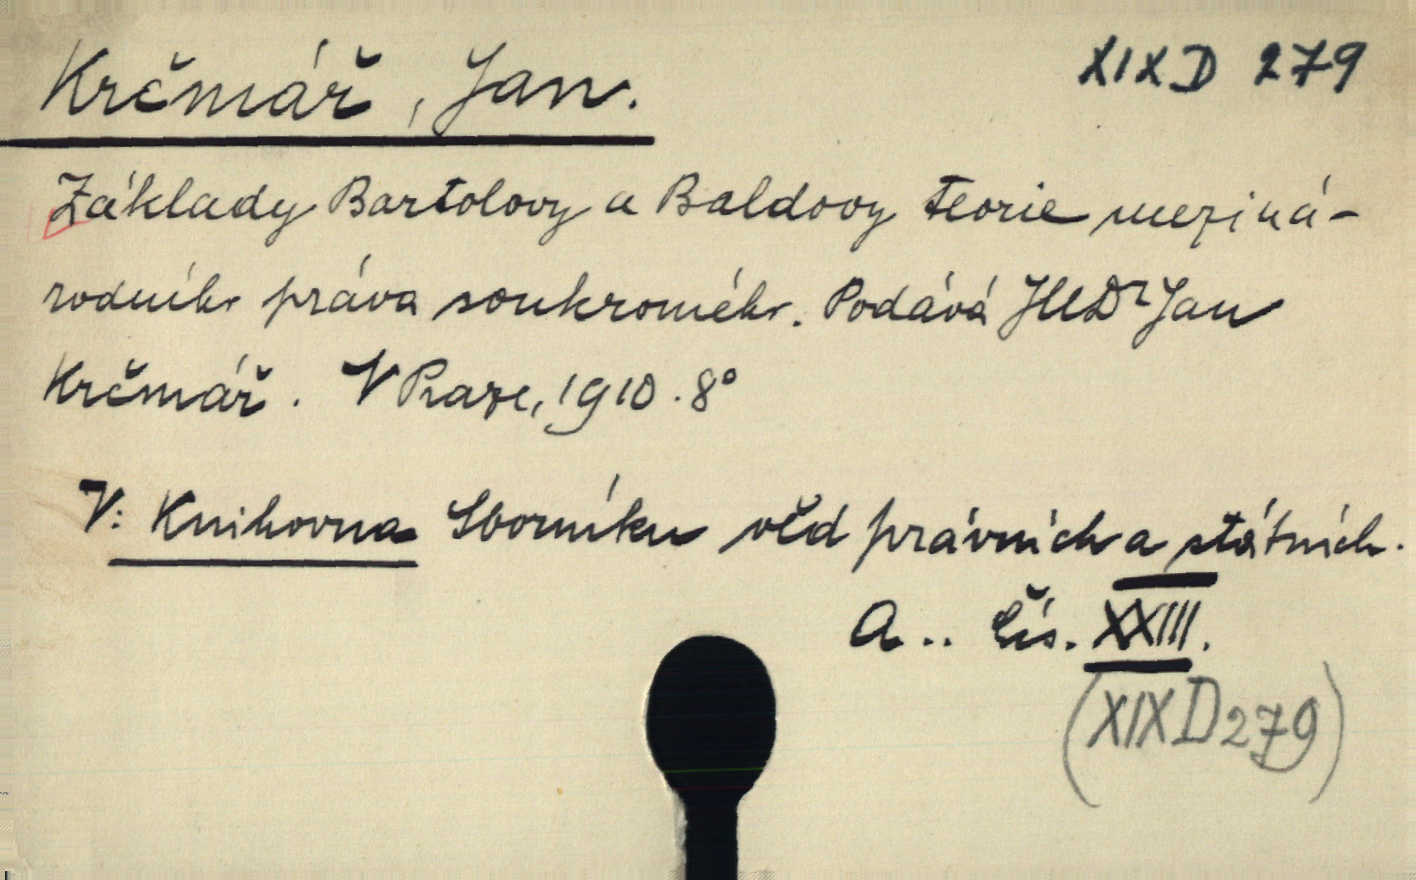 Krčmář, Jan.
XIX D 279
Základy Bartolovy a Baldovy teorie meziná-
rodního práva soukromého. Podává JUDr Jan
Krčmář. V Praze, 1910. 8°
V: Knihovna Sborníku věd právních a státních.
A .. čís. XXIII.
(XIX D 279)